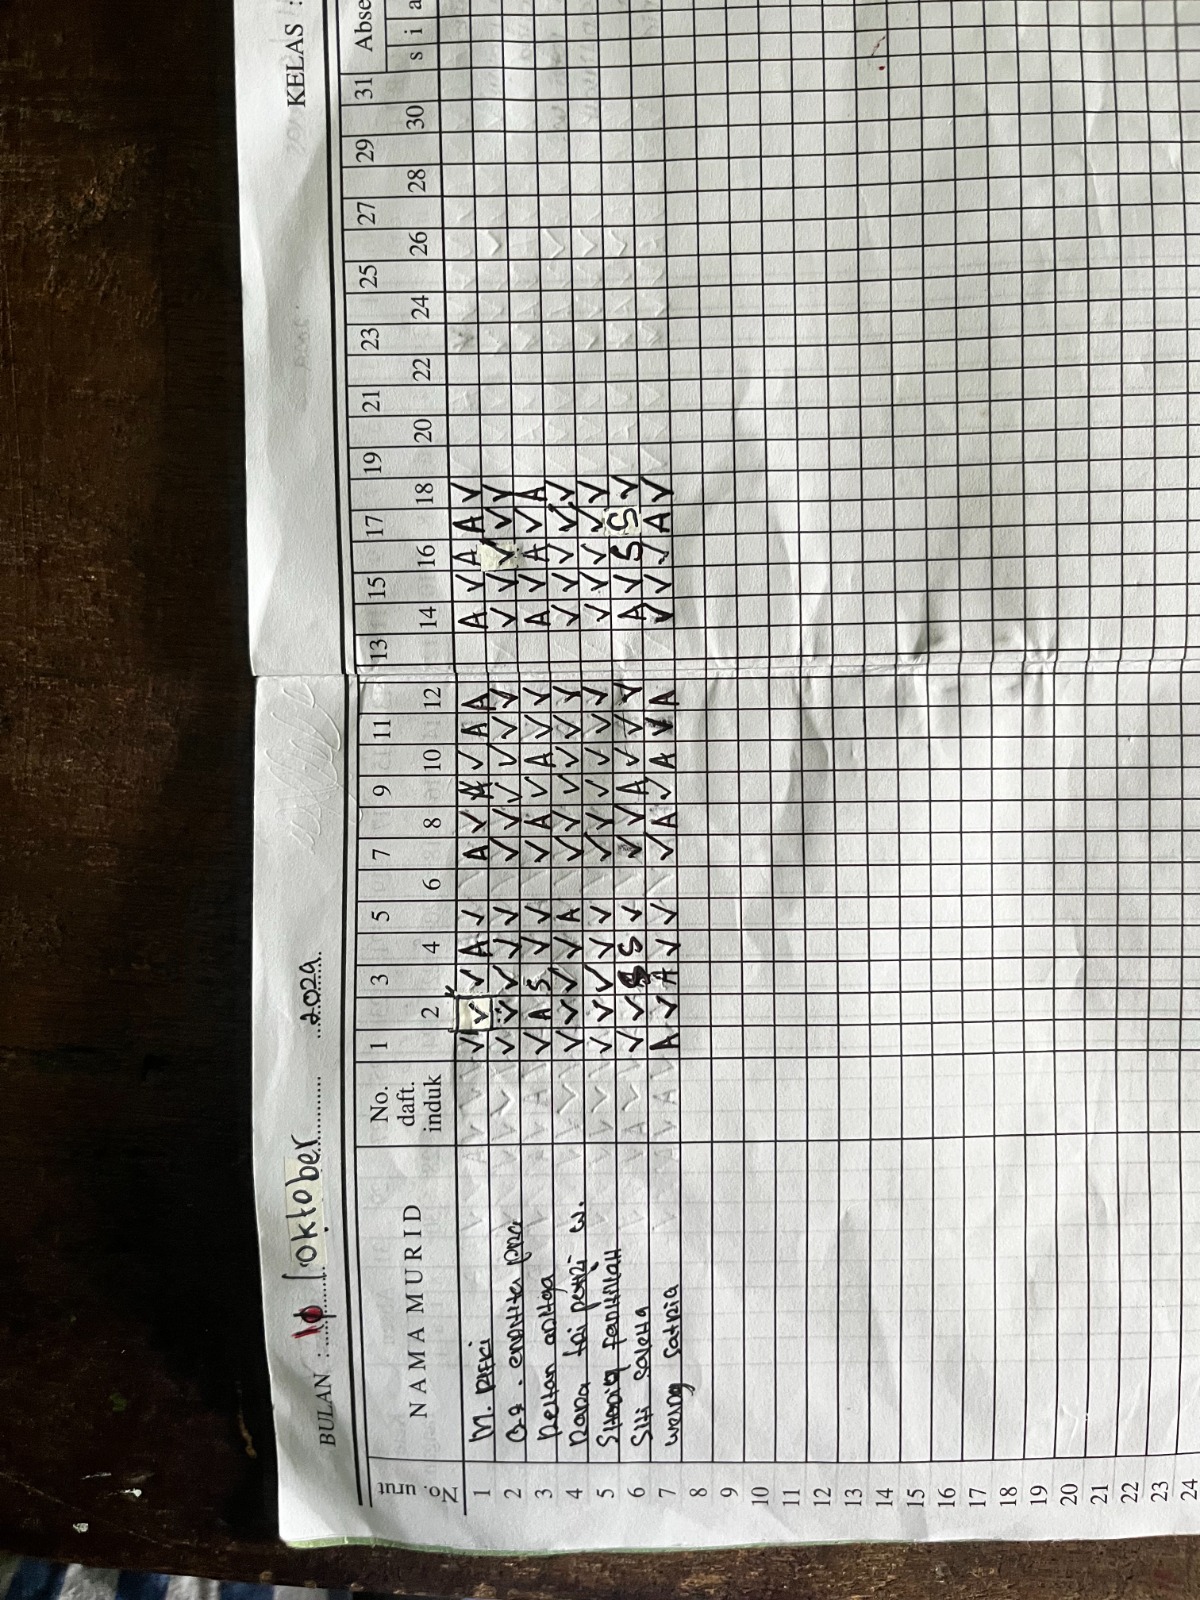 BULAN : 10 oktober 2024
KELAS :
No. urut NAMA MURID No. daft. induk 1 2 3 4 5 6 7 8 9 10 11 12 13 14 15 16 17 18 19 20 21 22 23 24 25 26 27 28 29 30 31 Abse
s i a
1 M. Rifki V V V A V A V A V A A A V A A V
2 V V V V V V V V V V V V V V V V
3 Reihan V A S V V V A V A V V A V A V A
4 Rara tri putri w. V V V V A V V V V V V V V V V V
5 V V V V V V V V V V V V V V V V
6 Siti Saleha V V S S V V V A V V V A V S S V
7 satria A V A V V V A V A V A V V V A V
8
9
10
11
12
13
14
15
16
17
18
19
20
21
22
23
24